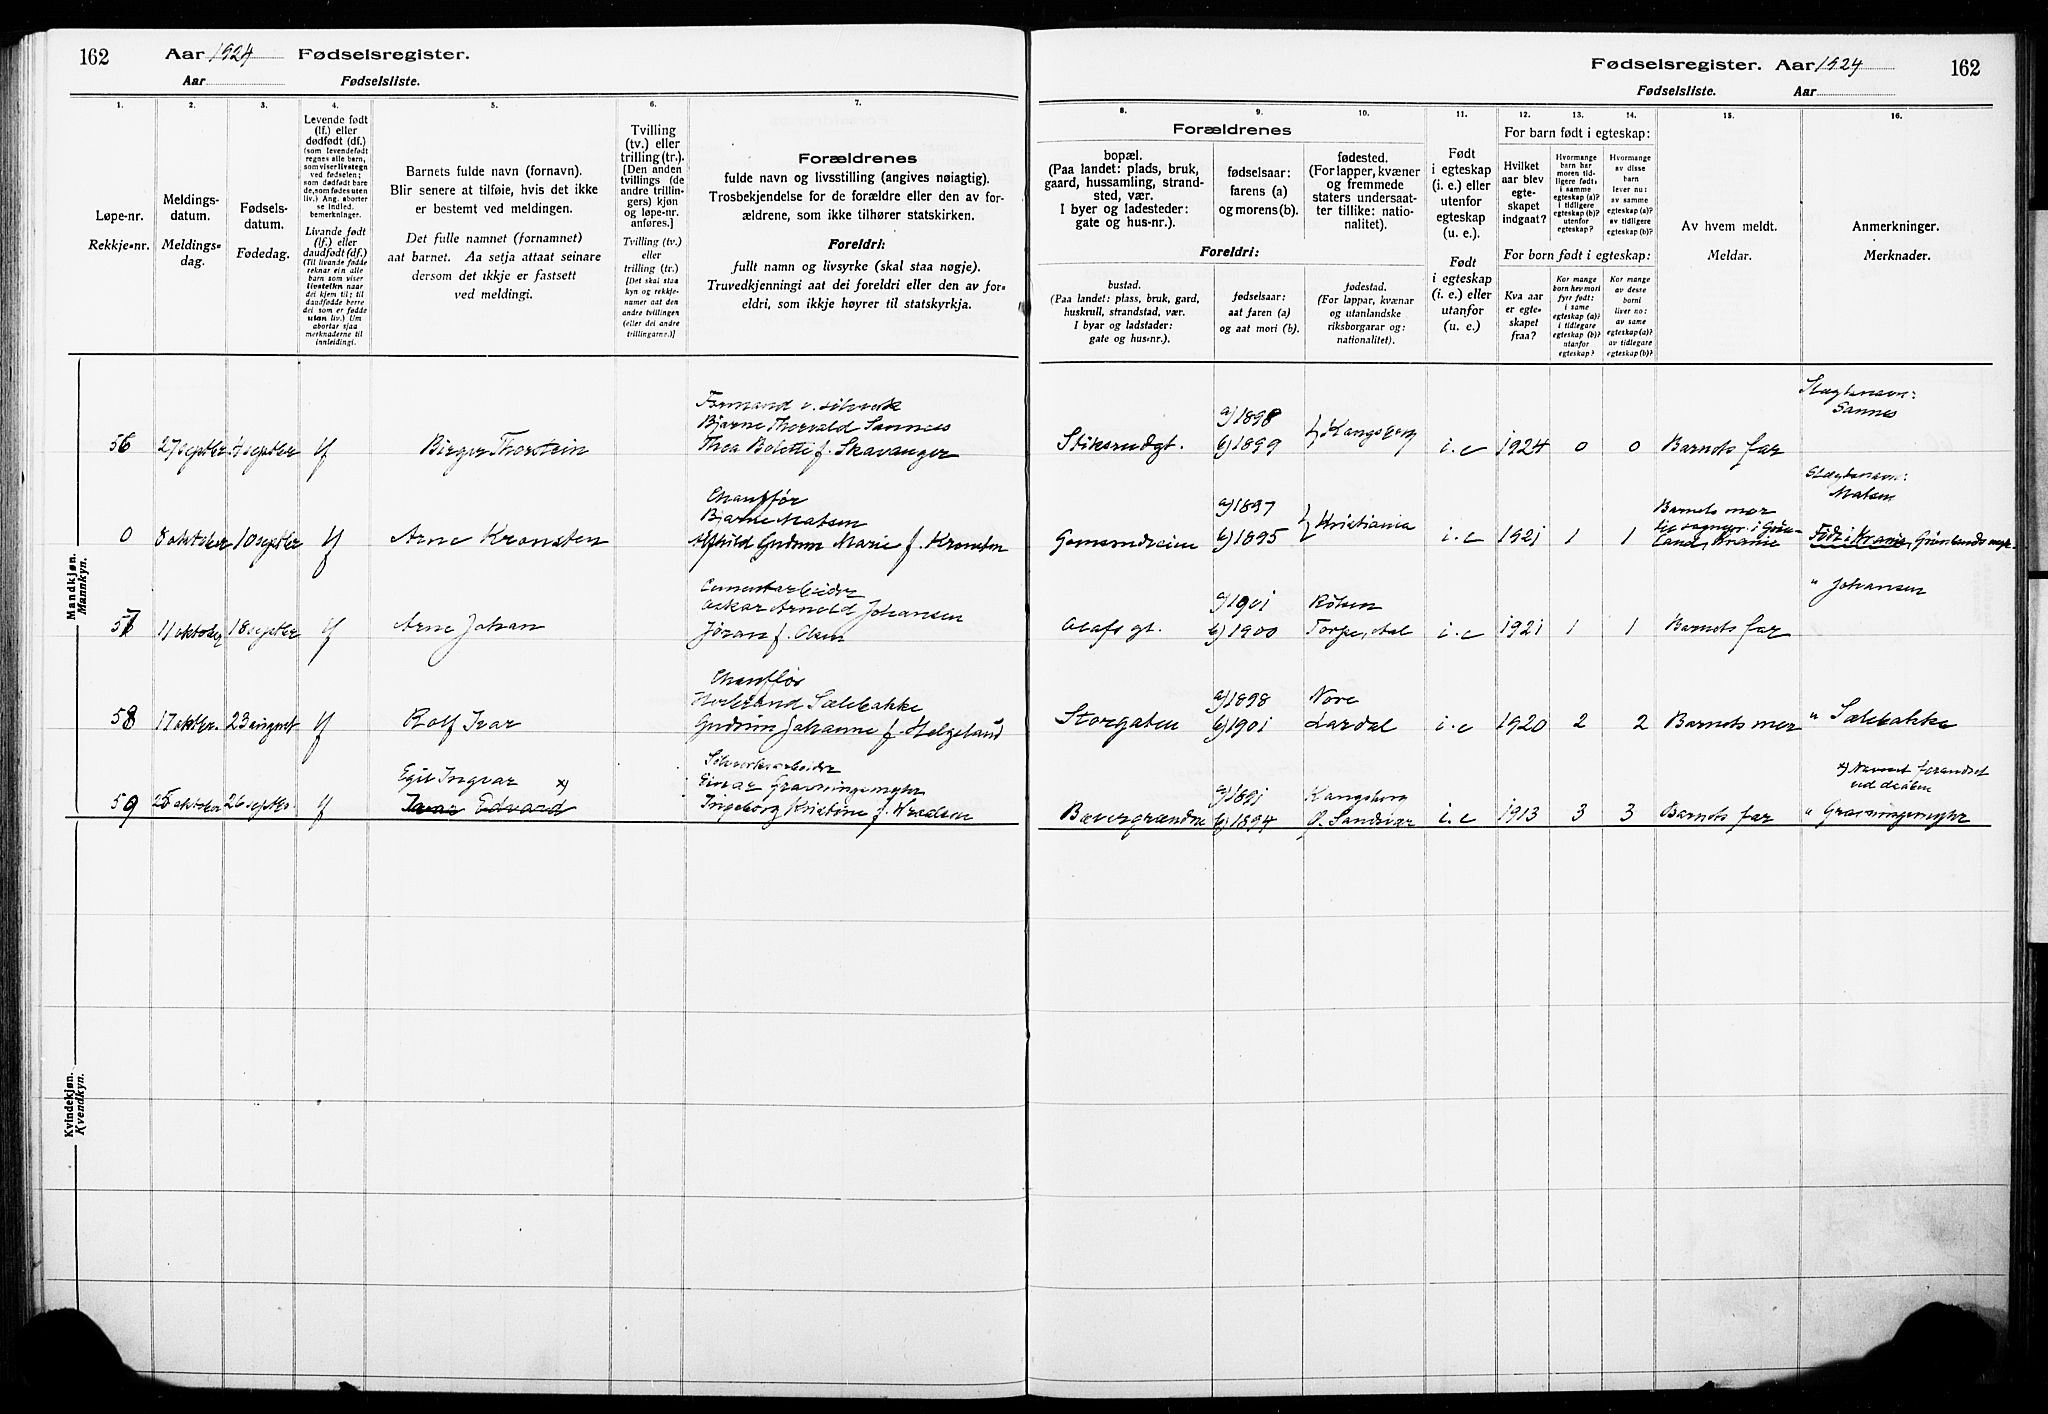 162 Aar 1924 Fødselsregister.
Aar Fødselsliste.
Fødselsregister. Aar 1924 162
Fødselsliste. Aar
1. 2. 3. 4. 5. 6. 7.
Løpe-nr.
Rekkje-nr.
Meldings-
datum.
Meldings-
dag.
Fødsels-
datum.
Fødedag.
Levende født
(lf.) eller
dødfødt (df.)
(som levendefødt
regnes alle barn,
som viser livstegn
ved fødselen;
som dødfødt bare
de, som fødes uten
liv.) Ang. aborter
se indled.
bemerkninger.
Livande født
(lf.) eller
daudfødt (df.)
(Til livande fødde
reknar ein alle
barn som viser
livsteikn naar
dei kjem til; til
daudfødde berre
dei som er fødde
utan liv.) Um
abortar sjaa
merknaderne til
innleidingi.
Barnets fulde navn (fornavn).
Blir senere at tilføie, hvis det ikke
er bestemt ved meldingen.
Det fulle namnet (fornamnet)
aat barnet. Aa setja attaat seinare
dersom det ikkje er fastsett
ved meldingi.
Tvilling
(tv.) eller
trilling (tr.).
[Den anden
tvillings (de
andre trillin-
gers) kjøn
og løpe-nr.
anføres.]
Tvilling (tv.)
eller
trilling (tr.)
[Det skal staa
kyn og rekkje-
numer aat den
andre tvillingen
(eller dei andre
trillingarne.)]
Forældrenes
fulde navn og livsstilling (angives nøiagtig).
Trosbekjendelse for de forældre eller den av for-
ældrene, som ikke tilhører statskirken.
Foreldri:
fullt namn og livsyrke (skal staa nøgje).
Truvedkjenningi aat dei foreldri eller den av for-
eldri, som ikkje høyrer til statskyrkja.
8. 9. 10. 11. 12. 13. 14. 15. 16.
Forældrenes
bopæl.
(Paa landet: plads, bruk,
gaard, hussamling, strand-
sted, vær.
I byer og ladesteder:
gate og hus-nr.).
fødselsaar:
farens (a)
og morens (b).
fødested.
(For lapper, kvæner
og fremmede
staters undersaat-
ter tillike: natio-
nalitet).
Foreldri:
bustad.
(Paa landet: plass, bruk, gard,
huskrull, strandstad, vær.
I byar og ladstader:
gate og hus-nr.).
fødselsaar:
aat faren (a)
og aat mori (b).
fødestad.
(For lappar, kvænar
og utanlandske
riksborgarar og:
nationalitet).
Født
i egteskap
(i. e.) eller
utenfor
egteskap
(u. e.).
Født
i egteskap
(i. e.) eller
utanfor
(u. e.).
For barn født i egteskap:
Hvilket
aar blev
egte-
skapet
indgaat?
Hvormange
barn har
moren tid-
ligere født:
i samme
egteskap (a)?
i tidligere
egteskap (b)?
utenfor
egteskap?
Hvormange
av disse
barn
lever nu:
av samme
egteskap (a)?
av tidligere
egteskap (b)?
For born født i egteskap:
Kva aar
er egte-
skapet
fraa?
Kor mange
born hev mori
fyrr født:
i same
egteskap (a)?
i tidlegare
egteskap (b)?
utanfor
egteskap?
Kor mange
av desse
borni
liver no:
av same
egteskap (a)?
av tidlegare
egteskap (b)?
Av hvem meldt.
Meldar.
Anmerkninger.
Merknader.
Mandkjøn.
Mannkyn.
Formand v. sølvverk
Bjarne Thorvald Sannes
56 27 septbr. 4 septbr lf Birger Thorstein Thea Bolette f. Skavanger
Slegtsnavn:
Sannes
a) 1898
Stiksrudgt. b) 1899 } Kongsberg i.e 1924 0 0 Barnets far
Chauffør
Bjarne Matsen
0 8 oktober 10 septbr lf Arne Kronsten Alfhild Gudrun Marie f. Kronsten
Slegtsnavn:
Matsen
a) 1897 Barnets mor
b) 1895 } Kristiania i.e 1921 1 1 Født i Krania, Grønlands
Cementarbeider
Oskar Arnold Johansen
57 11 oktober 18 septbr lf Arne Johan Jøran f. Olsen
" Johansen
a) 1901
Olafs gt. b) 1900 Torpe, Aal i.e 1921 1 1 Barnets far
Chauffør
Herbrand Sælebakke
58 17 oktbr. 23 august lf Rolf Ivar Gudrun Johanne f. Helgeland
a) 1898 Nore
Storgaten b) 1901 Lardal i.e 1920 2 2 Barnets mor " Sælebakke
Egil Ingvar x) Sølvverksarbeider
Einar Gravningsmyhr
59 25 oktober 26 septbr. lf Ivar Edvard Ingeborg Kristine f. Wraalsen
x) Navnet forandret
ved dåben
a) 1891 Kongsberg
Bævergrænden b) 1894 Ø. Sandsvær i.e 1913 3 3 Barnets far " Gravningsmyhr
Kvindekjøn.
Kvendkyn.